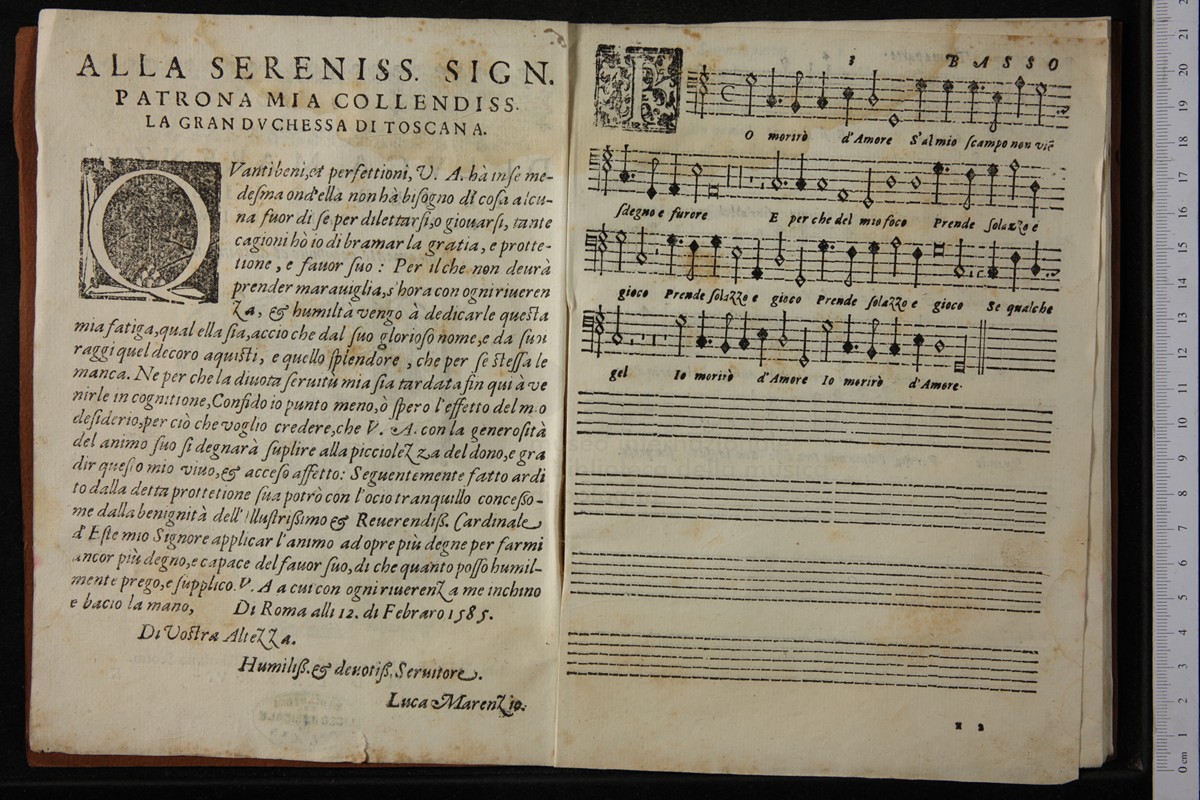 ALLA SERENISS. SIGN.
PATRONA MIA COLLENDISS.
LA GRANDVCHESSA DI TOSCANA.
QVanti beni, et perfettioni, V. A. hà in se me-
desma ond'ella non hà bisogno di cosa alcu-
na fuor di se per dilettarsi, o giouarsi, tante
cagioni hò io di bramar la gratia, e protte-
tione, e fauor suo: Per il che non deurà
prender marauiglia, s'hora con ogni riueren
za, & humiltà vengo à dedicarle questa
mia fatiga, qual ella sia, accio che dal suo glorioso nome, e da suoi
raggi quel decoro aquisti, e quello splendore, che per se stessa le
manca. Ne per che la diuota seruitù mia sia tardata fin qui à ve
nirle in cognitione, Confido io punto meno, ò spero l'effetto del mio
desiderio, per ciò che voglio credere, che V. A. con la generosità
del animo suo si degnarà suplire alla picciolezza del dono, e gra
dir questo mio viuo, & acceso affetto: Seguentemente fatto ardi
to dalla detta prottetione sua potrò con l'ocio tranquillo concesso-
me dalla benignità dell'Illustrissimo & Reuerendiss. Cardinale
d'Este mio Signore applicar l'animo ad opre più degne per farmi
ancor più degno, e capace del fauor suo, di che quanto posso humil-
mente prego, e supplico. V. A a cui con ogni riuerenza me inchino
e bacio la mano, Di Roma alli 12. di Febraro 1585.
Di Vostra Altezza.
Humiliss. & deuotiss. Seruitore.
Luca Marenzio.
3 BASSO
IO morirò d'Amore S'al mio scampo non viẽ
sdegno e furore E per che del mio foco Prende solazzo e
gioco Prende solazzo e gioco Prende solazzo e gioco Se qualche
gel Io morirò d'Amore Io morirò d'Amore.